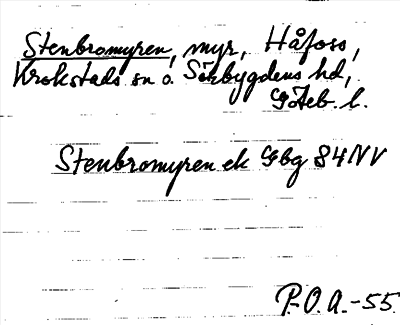 Stenbromyren, myr, Håfoss,
Krokstads sn o. Sörbygdens hd,
Göteb. l.
Stenbromyren ek Gbg 84NV
P.O.A.-55.